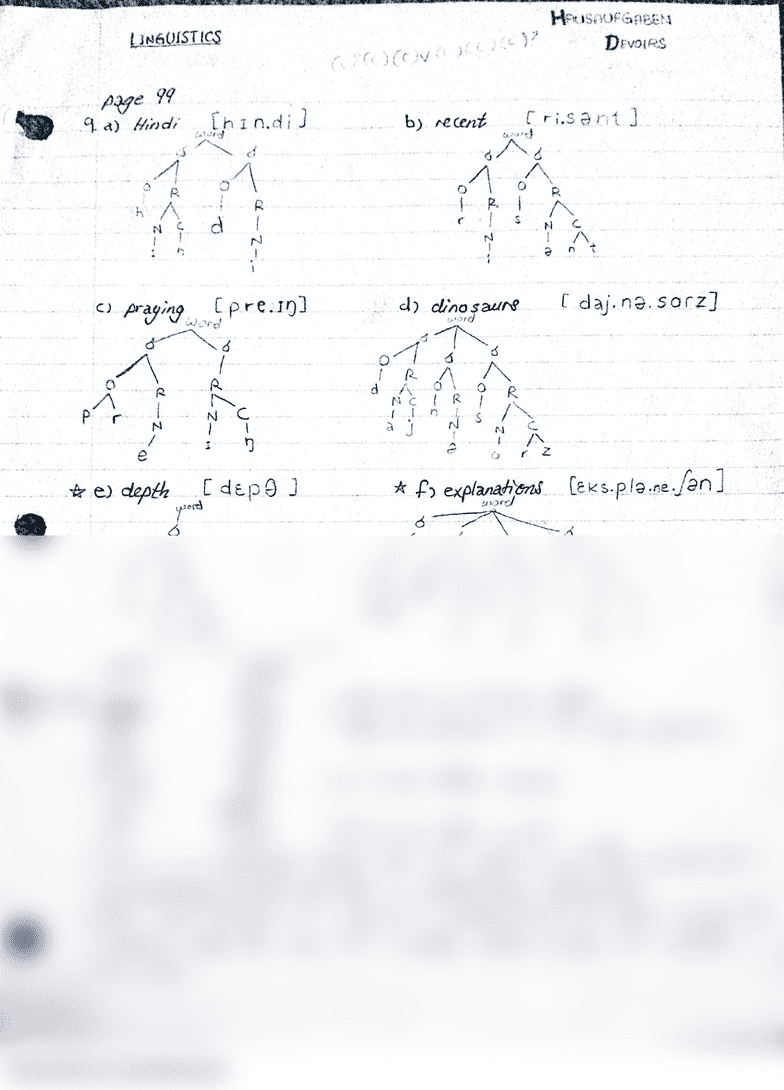 HAUSAUFGABEN
LINGUISTICS
DEVOIRS
(c)(c)(c)V(c)(c)(c)?
page 99
9. a) Hindi [hɪn.di]
b) recent [ri.sənt]
word
word
σ σ
σ σ
O R O R
O R O R
h N C d N
r N s N C
i n i
i ə n t
c) praying [pre.ɪŋ]
d) dinosaurs [daj.nə.sorz]
word
word
σ σ
σ σ σ
O R R
O R O R O R
p r N N C
d N C n N s N C
e ɪ ŋ
a j ə o r z
☆ e) depth [dɛpθ]
★ f) explanations [ɛks.plə.ne.ʃən]
word
word
σ
σ σ